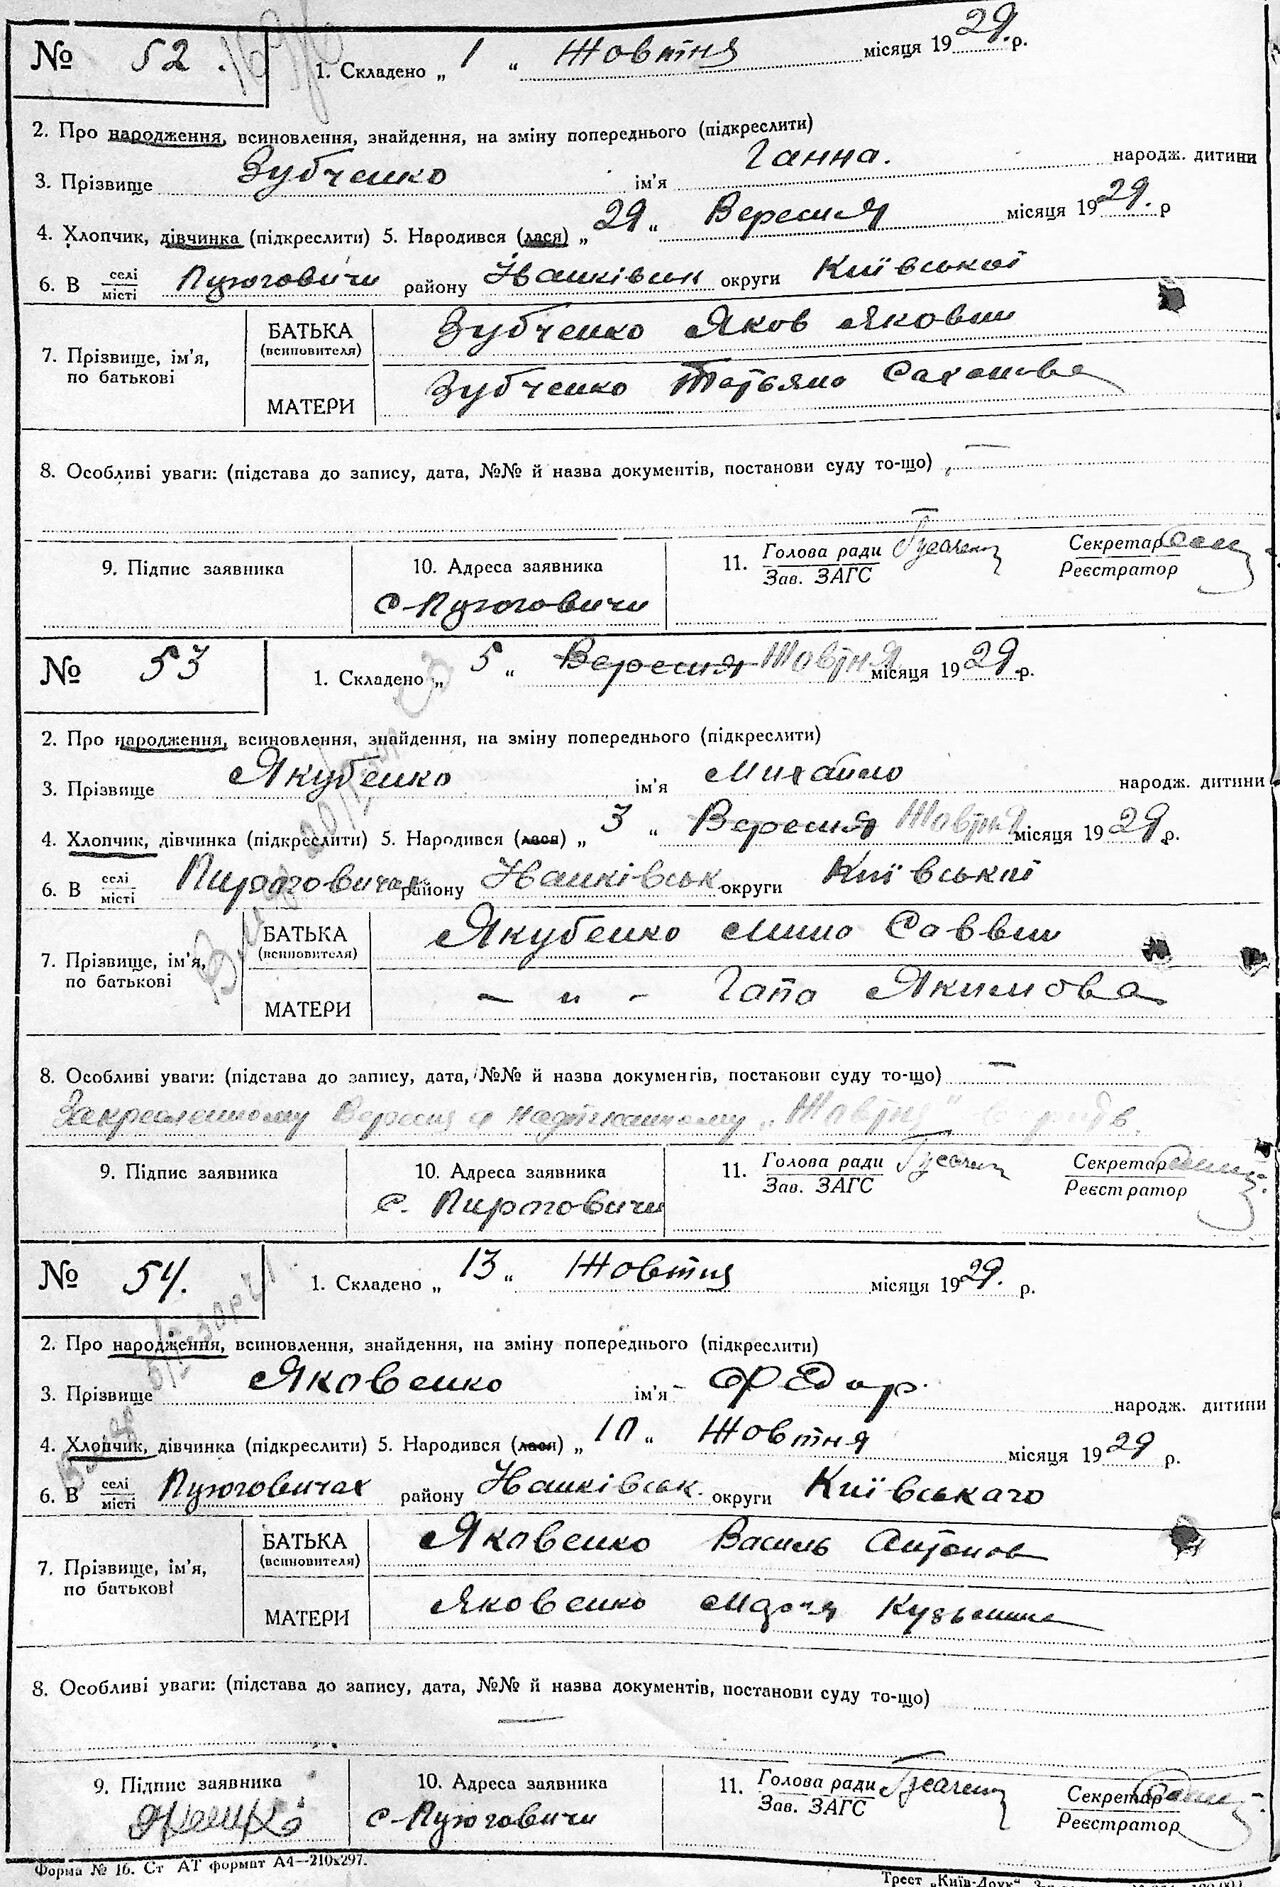 № 52. 1. Складено „ 1 “ Жовтня місяця 1929. р.
2. Про народження, всиновлення, знайдення, на зміну попереднього (підкреслити)
3. Прізвище Зубченко ім'я Ганна. народж. дитини
4. Хлопчик, дівчинка (підкреслити) 5. Народився (лася) „ 29 “ Вересня місяця 1929. р
6. В селі/місті Пузюговичи району Иванківськ округи Київської
7. Прізвище, ім'я, по батькові
БАТЬКА (всиновителя) Зубченко Яков Якович
МАТЕРИ Зубченко Татьяна
8. Особливі уваги: (підстава до запису, дата, №№ й назва документів, постанови суду то-що) —
9. Підпис заявника 10. Адреса заявника 11. Голова ради Секретар
Зав. ЗАГС Реєстратор
с Пузюговичи
№ 53 1. Складено „ 5 “ Вересня Жовтня місяця 1929 р.
2. Про народження, всиновлення, знайдення, на зміну попереднього (підкреслити)
3. Прізвище Якубенко ім'я Михайло народж. дитини
4. Хлопчик, дівчинка (підкреслити) 5. Народився (лася) „ 3 “ Вересня Жовтня місяця 1929 р.
6. В селі/місті Пироговичах району Иванківськ округи Київської
7. Прізвище, ім'я, по батькові
БАТЬКА (всиновителя) Якубенко Мина Саввич
МАТЕРИ — „ — Гапа Якимова
8. Особливі уваги: (підстава до запису, дата, №№ й назва документів, постанови суду то-що) —
Закресленному Вересня а надписанному „Жовтня“
9. Підпис заявника 10. Адреса заявника 11. Голова ради Секретар
Зав. ЗАГС Реєстратор
с. Пироговичи
№ 54. 1. Складено „ 13 “ Жовтня місяця 1929. р.
2. Про народження, всиновлення, знайдення, на зміну попереднього (підкреслити)
3. Прізвище Яковенко ім'я Федор. народж. дитини
4. Хлопчик, дівчинка (підкреслити) 5. Народився (лася) „ 10 “ Жовтня місяця 1929 р.
6. В селі/місті Пузюговичах району Иванківськ. округи Київського
7. Прізвище, ім'я, по батькові
БАТЬКА (всиновителя) Яковенко Василь Антонов
МАТЕРИ Яковенко
8. Особливі уваги: (підстава до запису, дата, №№ й назва документів, постанови суду то-що)
—
9. Підпис заявника 10. Адреса заявника 11. Голова ради Секретар
Зав. ЗАГС Реєстратор
с Пузюговичи
Форма № 16. Ст АТ формат А4—210x297.
Трест „Київ-Друк“